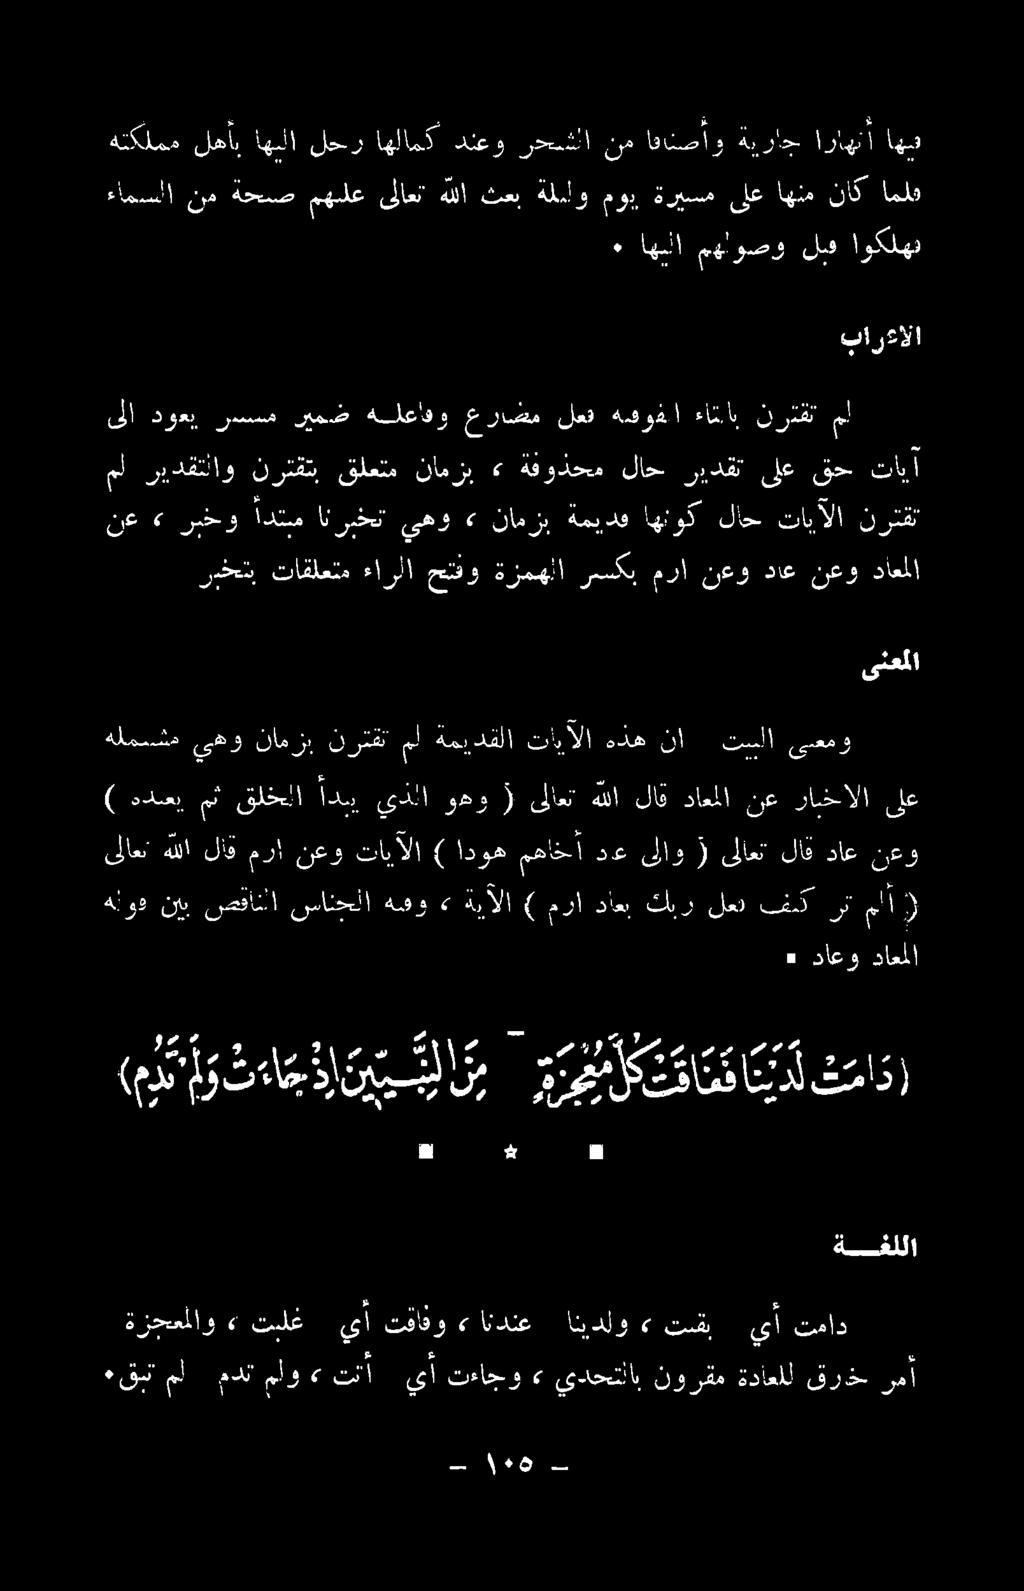 فيها أنهارا جارية وأصنافا من الشجر وعند كمالها رحل اليها بأهل مملكته
فلما كان منها على مسيرة يوم وليلة بعث الله تعالى عليهم صيحة من السماء
فهلكوا قبل وصولهم اليها •
الاعراب
لم تقترن بالتاء الفوقيه فعل مضارع وفاعلـه ضمير مستتر يعود الى
آيات حق على تقدير حال محذوفة ، بزمان متعلق بتقترن والتقدير لم
تقترن الآيات حال كونها قديمة بزمان ، وهي تخبرنا مبتدأ وخبر ، عن
المعاد وعن عاد وعن ارم بكسر الهمزة وفتح الراء متعلقات بتخبر
المعنى
ومعنى البيت ان هذه الآيات القديمة لم تقترن بزمان وهي مشتمله
على الاخبار عن المعاد قال الله تعالى ( وهو الذي يبدأ الخلق ثم يعيده )
وعن عاد قال تعالى ( والى عاد أخاهم هودا ) الآيات وعن ارم قال الله تعالى
( ألم تر كيف فعل ربك بعاد ارم ) الآية ، وفيه الجناس الناقص بين قوله
المعاد وعاد ▪
(دَامَتْ لَدَيْنَا فَفَاقَتْ كُلَّ مُعْجِزَةٍ – مِنَ النَّبِيِّينَ إِذْ جَاءَتْ وَلَمْ تَدُمِ)
▪ ☆ ▪
اللغـــة
دامت أي بقيت ، ولدينا عندنا ، وفاقت أي غلبت ، والمعجزة
أمر خارق للعادة مقرون بالتحدي ، وجاءت أي أتت ، ولم تدم لم تبق •
– ١٠٥ –